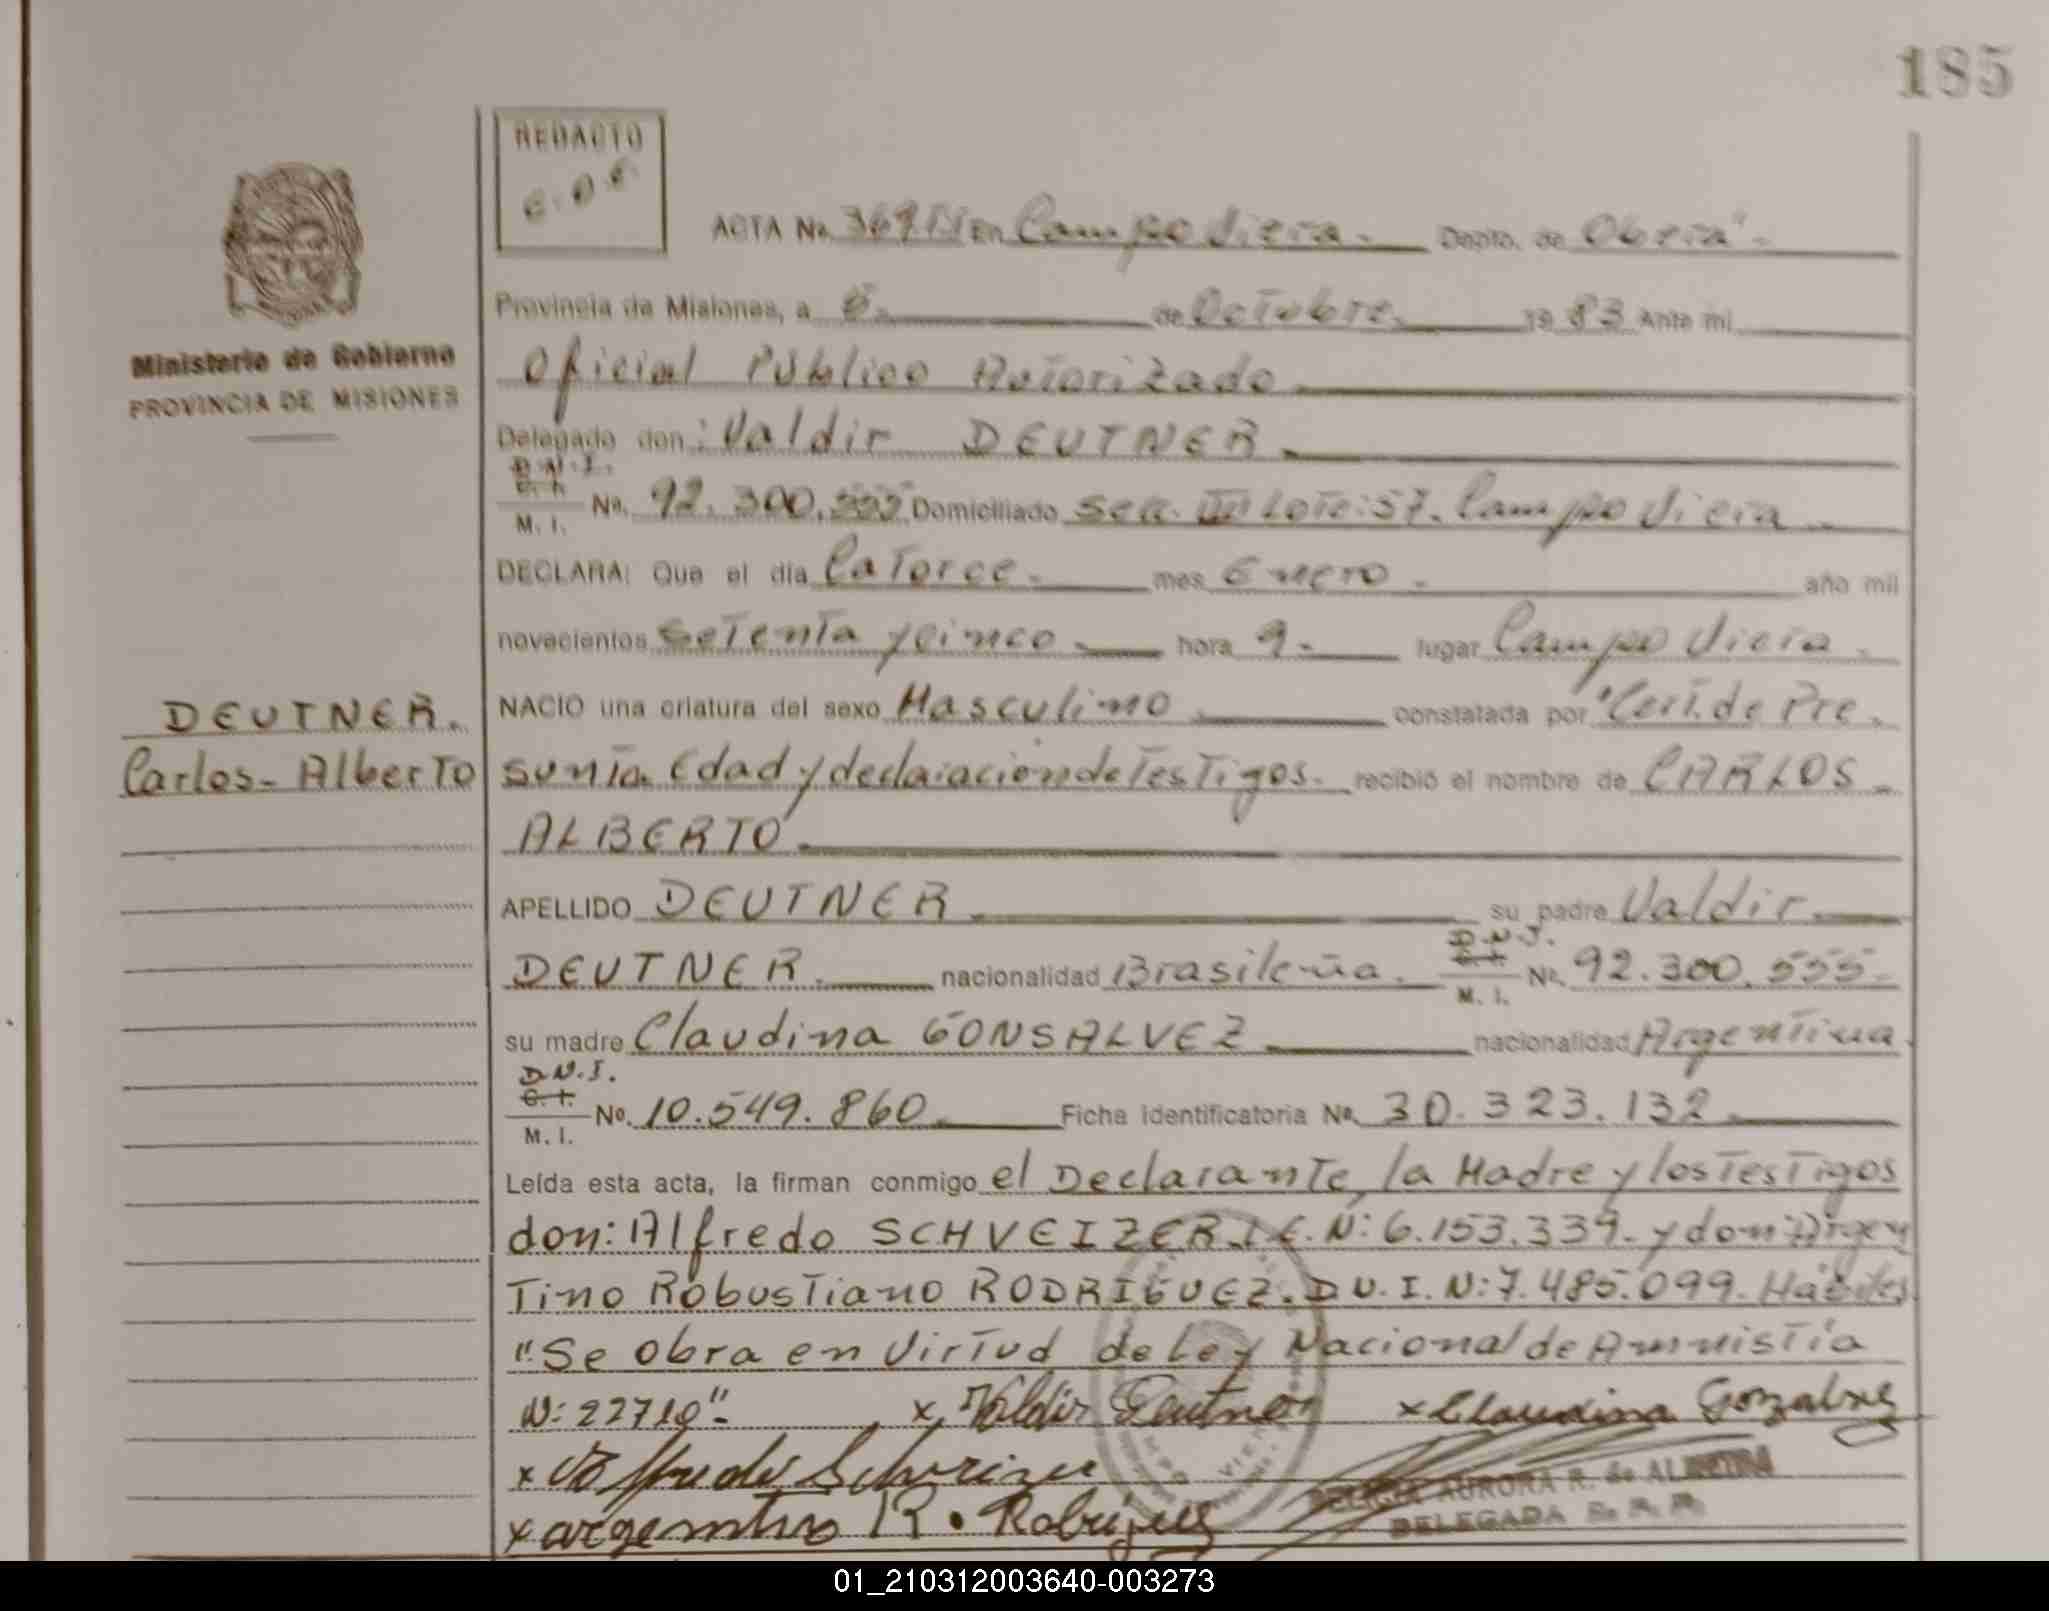 185
REDACTO
ACTA No. 369 En Campo Viera. Depto. de Oberá.
Ministerio de Gobierno
PROVINCIA DE MISIONES
Provincia de Misiones, a 6. de Octubre. 1983 Ante mi
Oficial Público Autorizado
Delegado don: Valdir DEUTNER
D.N.I.
C. I.
M. I.
No. 92.300.555 Domiciliado Sec. III Lote: 57. Campo Viera
DECLARA: Que el día Catorce. mes Enero. año mil
novecientos setenta y cinco hora 9. lugar Campo Viera.
DEUTNER.
Carlos-Alberto
NACIO una criatura del sexo Masculino constatada por Cert. de Pre.
sunta Edad y declaración de Testigos. recibió el nombre de CARLOS
ALBERTO
APELLIDO DEUTNER su padre Valdir
DEUTNER. nacionalidad Brasileña. D.N.I. C. I. M. I. No. 92.300.555.
su madre Claudina GONSALVEZ nacionalidad Argentina
D.N.I.
C. I.
M. I.
No. 10.549.860 Ficha identificatoria No. 30.323.132
Leída esta acta, la firman conmigo el Declarante, la Madre y los Testigos
don: Alfredo SCHVEIZER. L.E. N: 6.153.339. y don: Argen
Tino Robustiano RODRIGUEZ. D.N.I. N: 7.485.099. Hábiles
"Se obra en Virtud de Ley Nacional de Amnistía
N: 22710".- x Valdir Deutner x Claudina Gonzalvez
x Alfredo Schveizer
x argentino R. Rodriguez
DELICIA AURORA R. de
DELEGADA
01_210312003640-003273